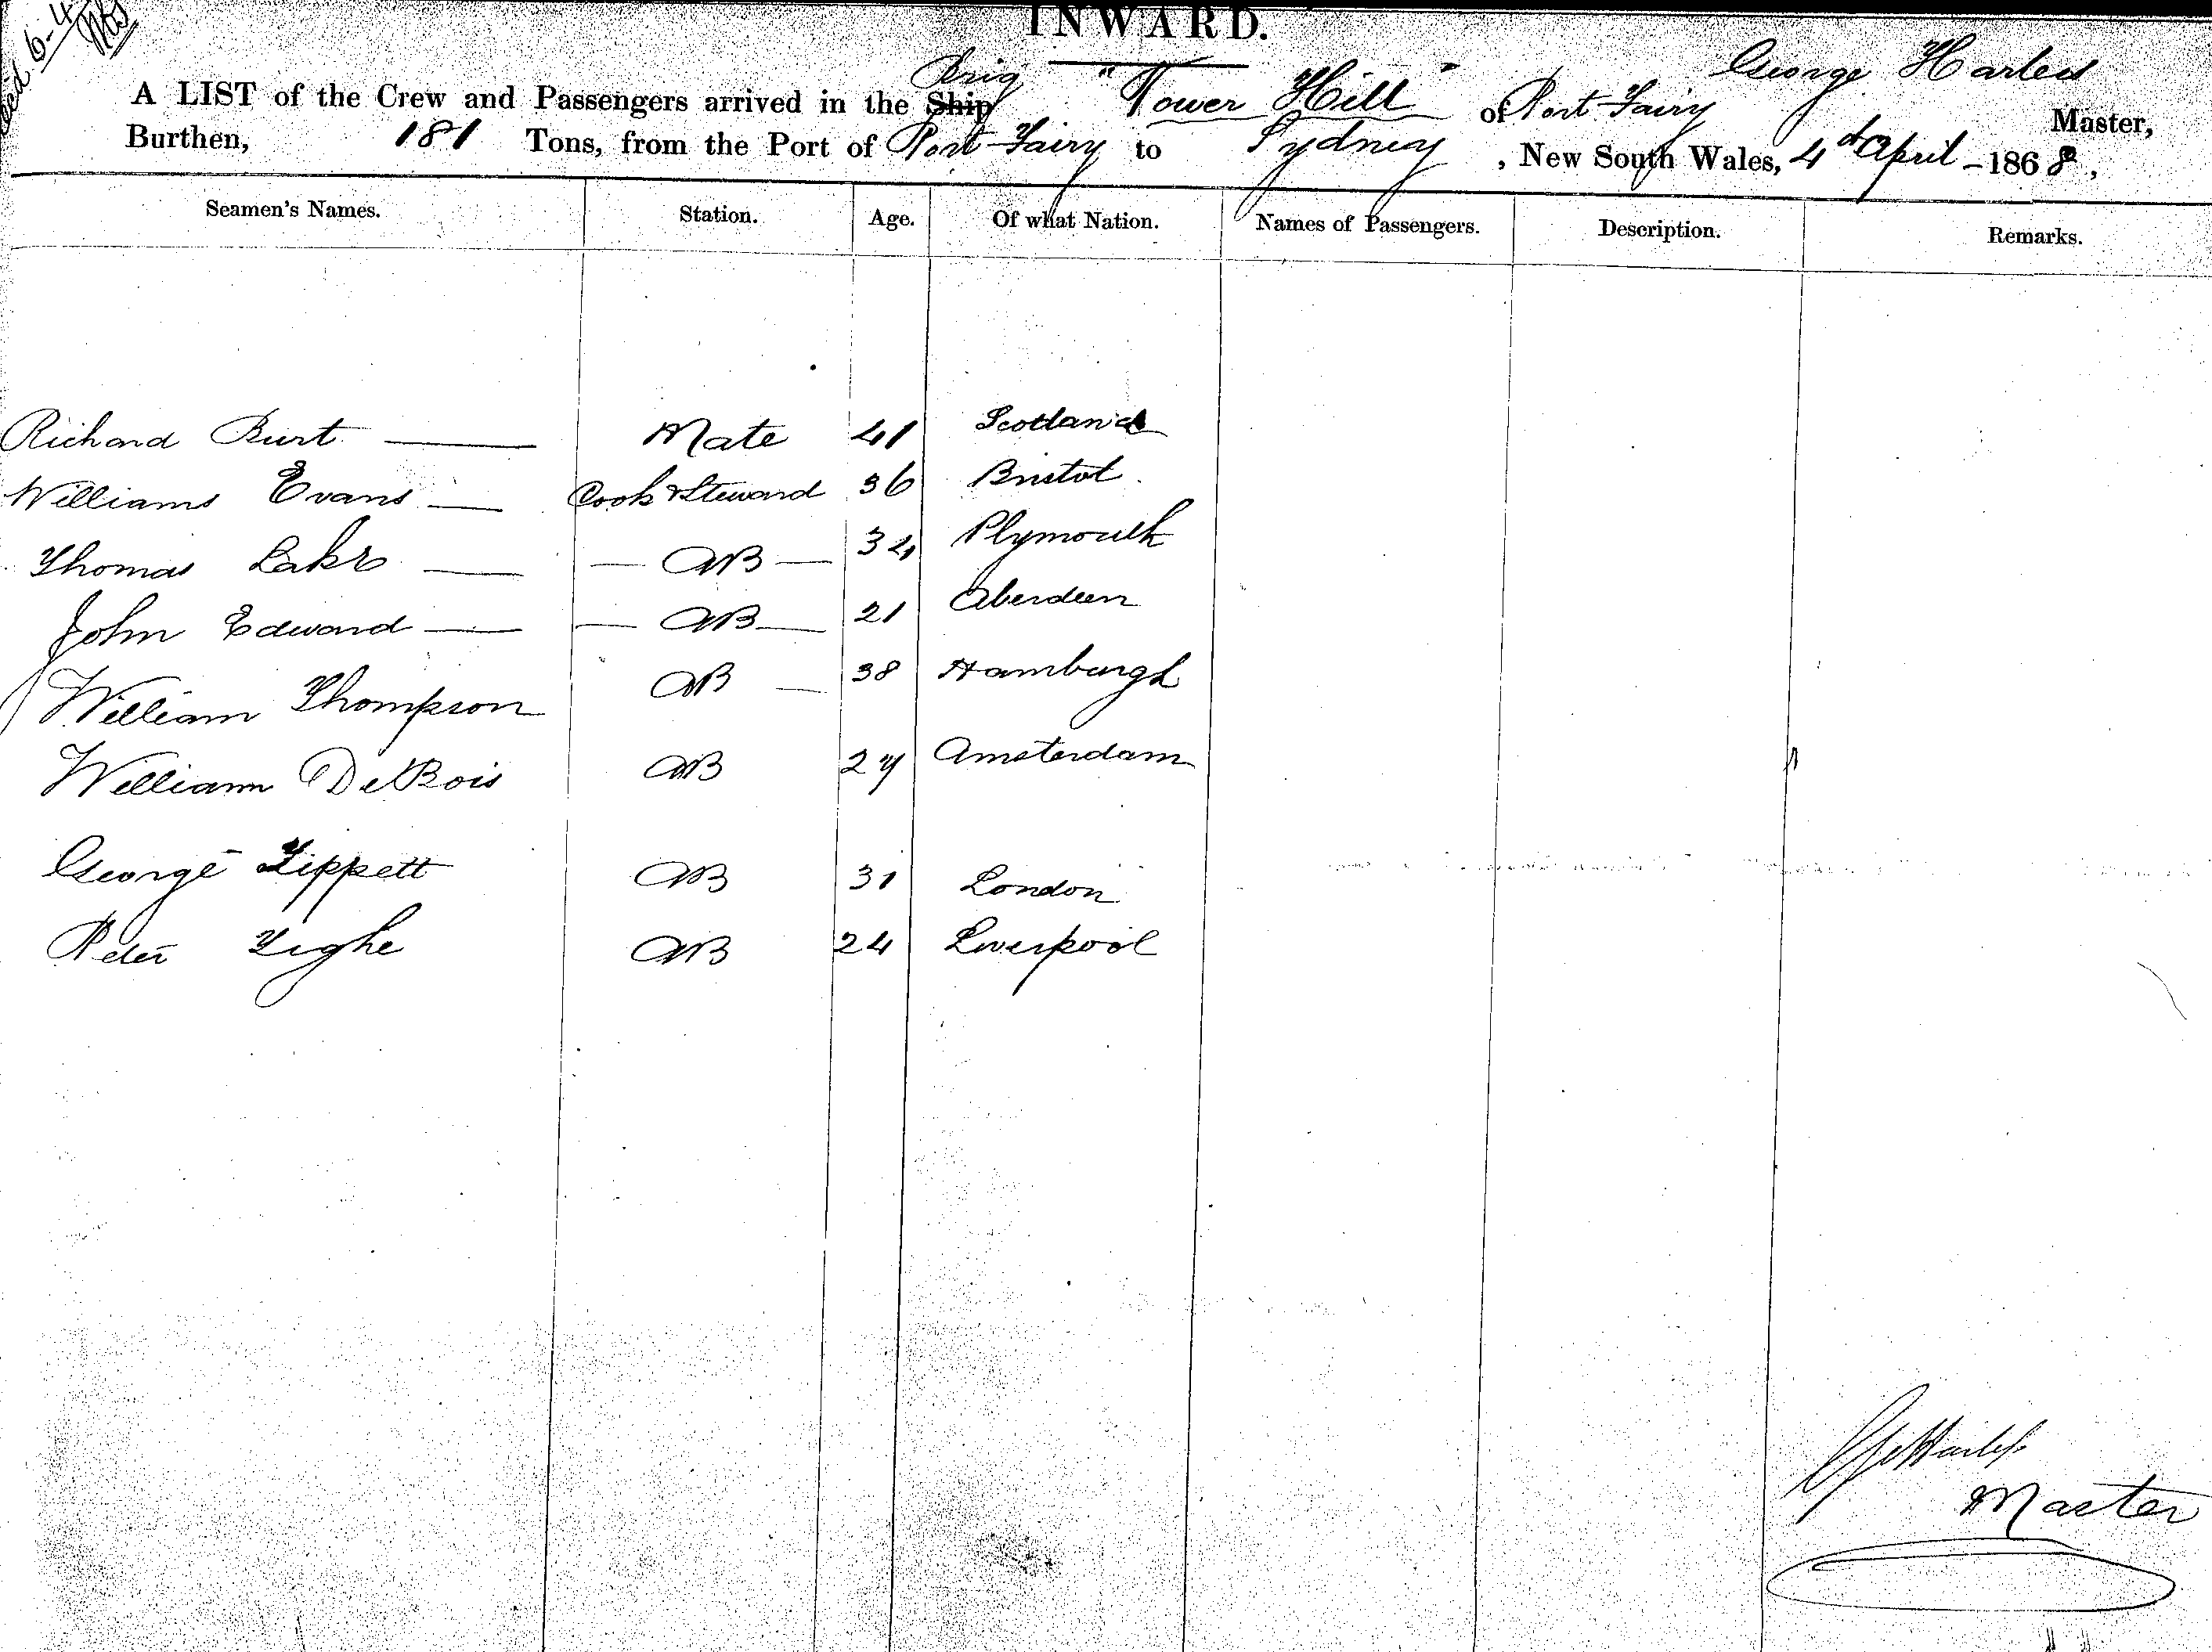 INWARD.
6-4
A LIST of the Crew and Passengers arrived in the Ship Brig "Tower Hill" of Port Fairy George Harless Master,
Burthen, 181 Tons, from the Port of Port Fairy to Sydney, New South Wales, 4th April - 1868,
Seamen's Names. Station. Age. Of what Nation. Names of Passengers. Description. Remarks.
Richard Burt Mate 41 Scotland
Williams Evans Cook & Steward 36 Bristol
Thomas Lake AB 34 Plymouth
John Edward AB 21 Aberdeen
William Thompson AB 38 Hamburgh
William DeBois AB 27 Amsterdam
George Tippett AB 31 London
Peter Tighe AB 24 Liverpool
Master